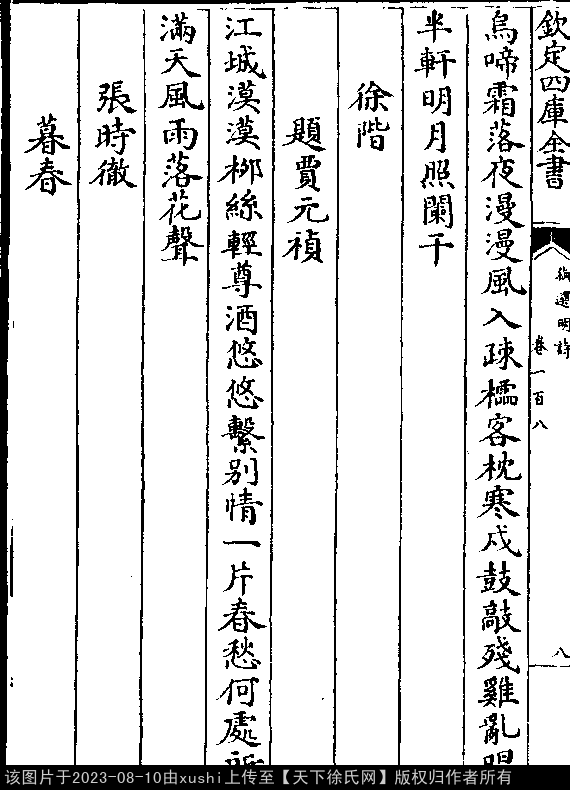 欽定四庫全書
御選明詩
卷一百八
八
烏啼霜落夜漫漫風入疎櫺客枕寒戍鼓敲殘雞亂
半軒明月照闌干
徐階
題賈元禎
江城漠漠柳絲輕尊酒悠悠繫别情一片春愁何處
滿天風雨落花聲
張時徹
暮春
该图片于2023-08-10由xushi上传至【天下徐氏网】版权归作者所有